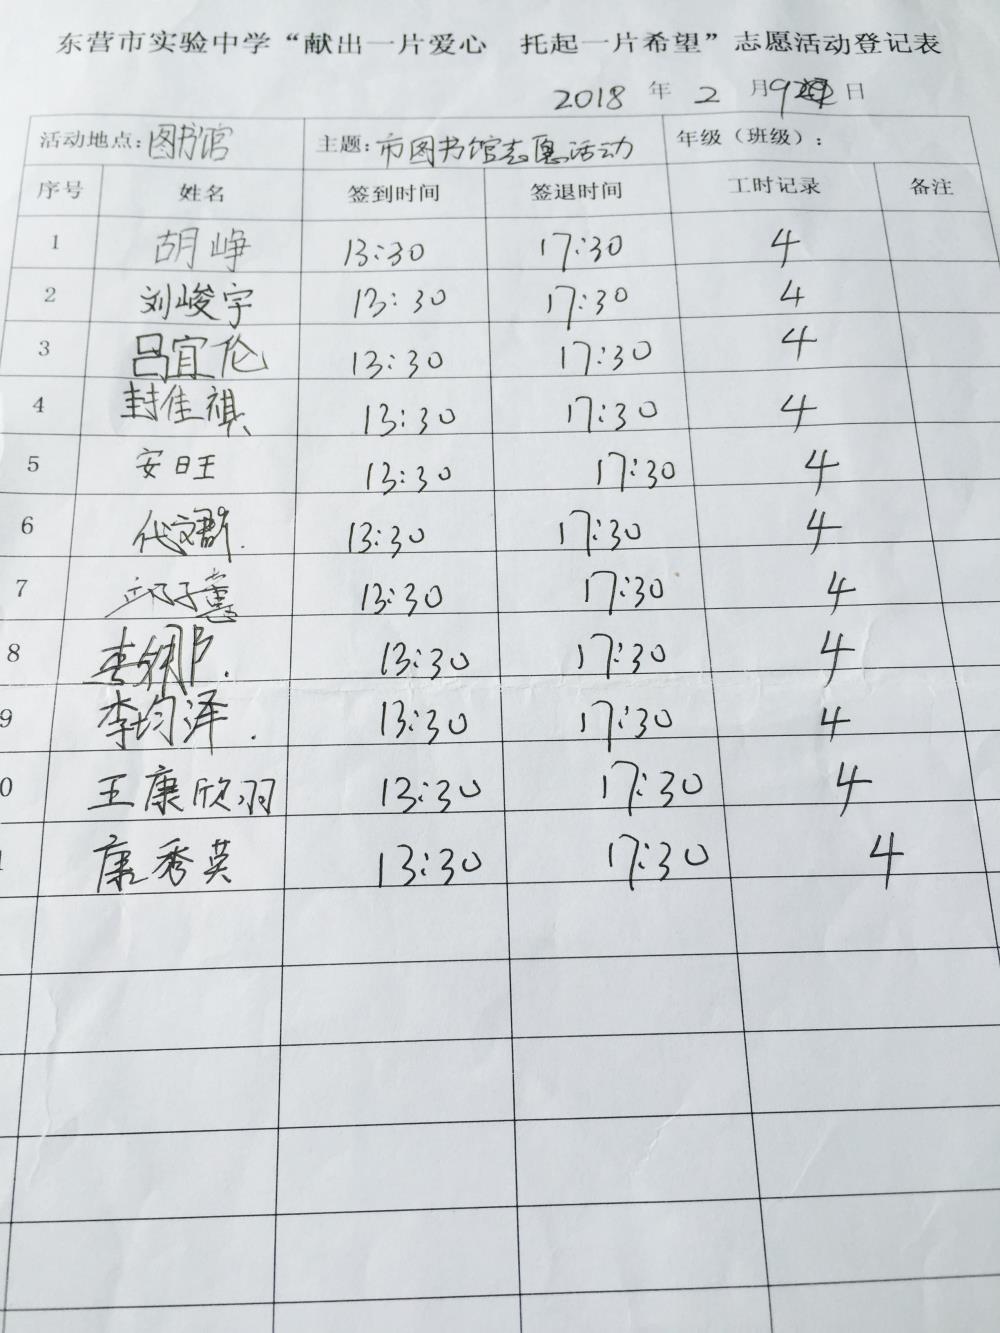 东营市实验中学“献出一片爱心 托起一片希望”志愿活动登记表
2018 年 2 月 9 日
活动地点：图书馆 主题：市图书馆志愿活动 年级（班级）：
序号 姓名 签到时间 签退时间 工时记录 备注
1 胡峥 13:30 17:30 4
2 刘峻宇 13:30 17:30 4
3 吕宜伦 13:30 17:30 4
4 封佳祺 13:30 17:30 4
5 安旺 13:30 17:30 4
6 代文群 13:30 17:30 4
7 13:30 17:30 4
8 13:30 17:30 4
9 李均泽 13:30 17:30 4
0 王康欣羽 13:30 17:30 4
康秀英 13:30 17:30 4